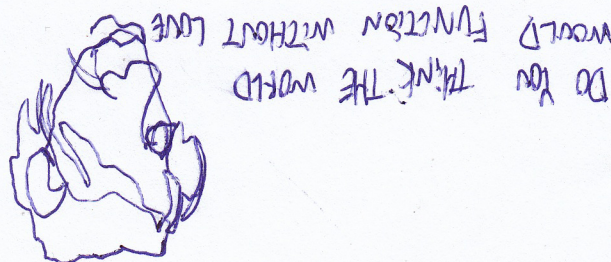 DO YOU THINK THE WORLD
WOULD FUNCTION WITHOUT LOVE